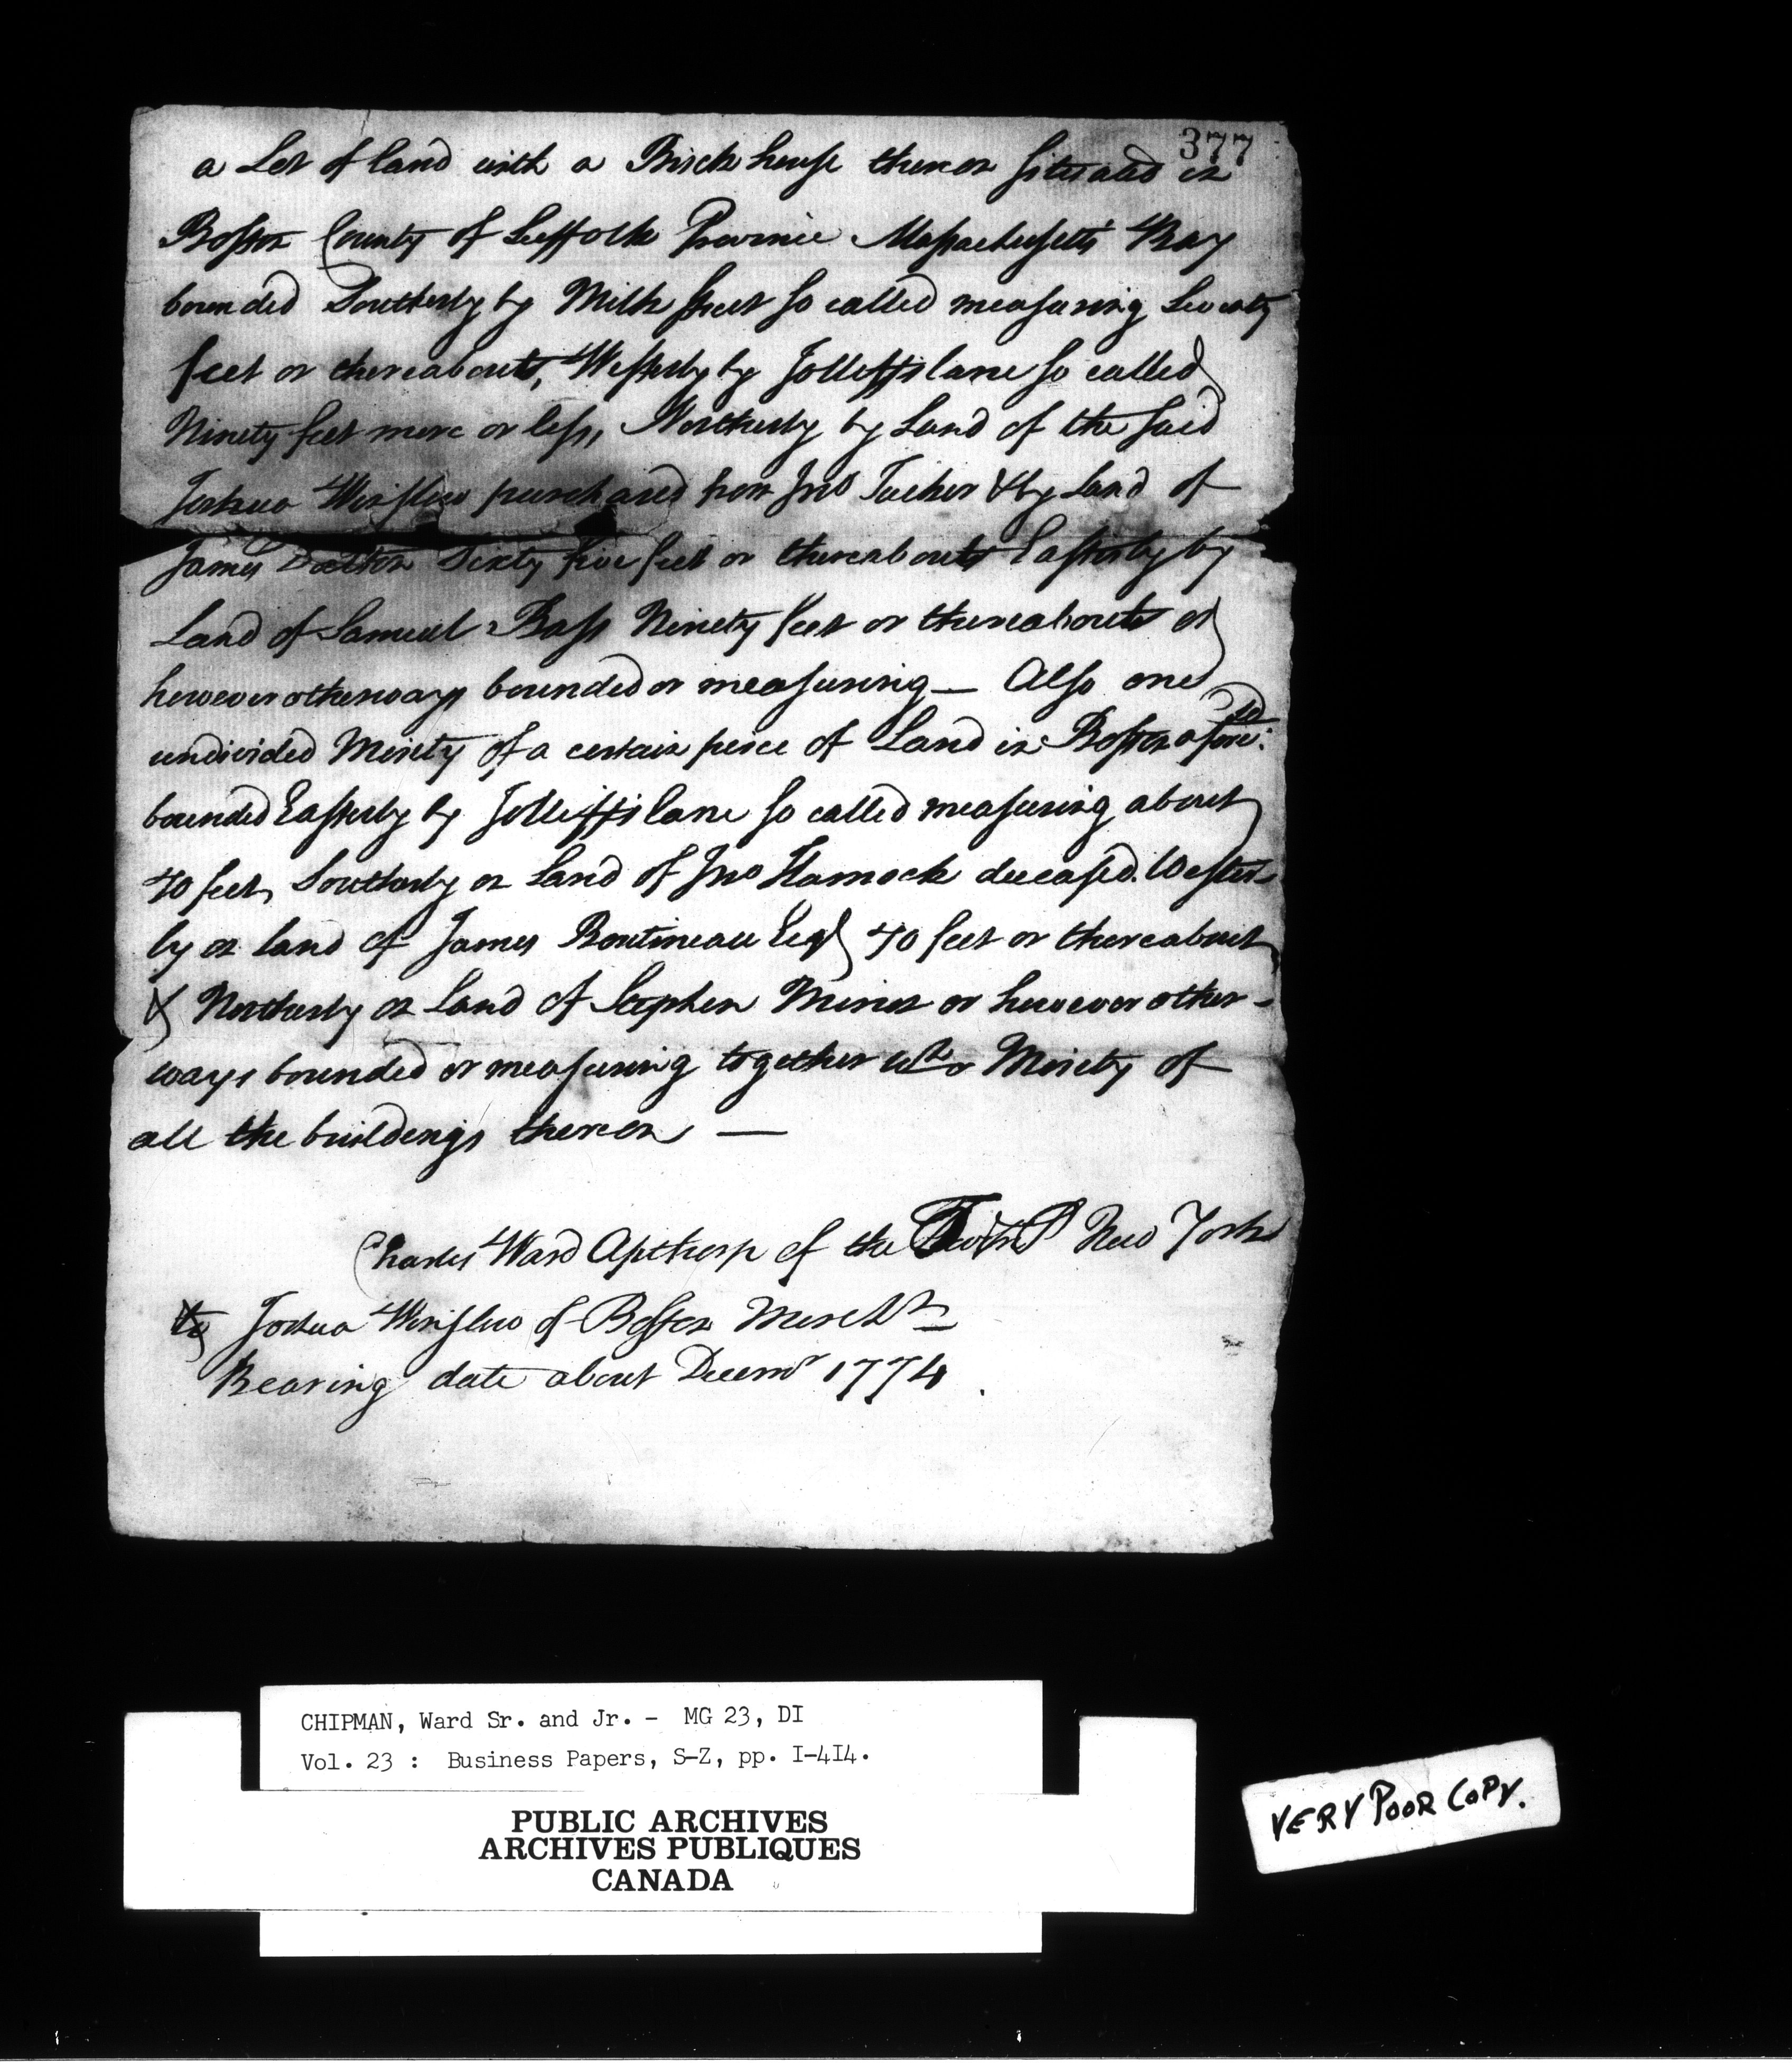 377
a Lot of land with a Brick house thereon situated in
Boston County of Suffolk Province Massachusetts Bay
bounded Southerly by Milk street so called measuring Seventy
feet or thereabouts, Westerly by Jolliffs lane so called
Ninety feet more or less, Northerly by Land of the said
Joshua Winslow purchased from Jno Tucker & by Land of
James Dalton Sixty five feet or thereabouts Easterly by
Land of Samuel Bass Ninety feet or thereabouts or
however otherways bounded or measuring — Also one
undivided Moiety of a certain peice of Land in Boston afore:sd
bounded Easterly by Jolliffs lane so called measuring about
40 feet, Southerly on Land of Jno Hamock deceased. Wester-
ly on land of James Boutineau Esq 40 feet or thereabout
& Northerly on Land of Stephen Minot or however other-
ways bounded or measuring together wth a Moiety of
all the buildings thereon —
Charles Ward Apthorp of the New York
to Joshua Winslow of Boston Mercht
Bearing date about Decemr 1774.
CHIPMAN, Ward Sr. and Jr. - MG 23, DI
Vol. 23 : Business Papers, S-Z, pp. I-4I4.
PUBLIC ARCHIVES
ARCHIVES PUBLIQUES
CANADA
VERY POOR COPY.